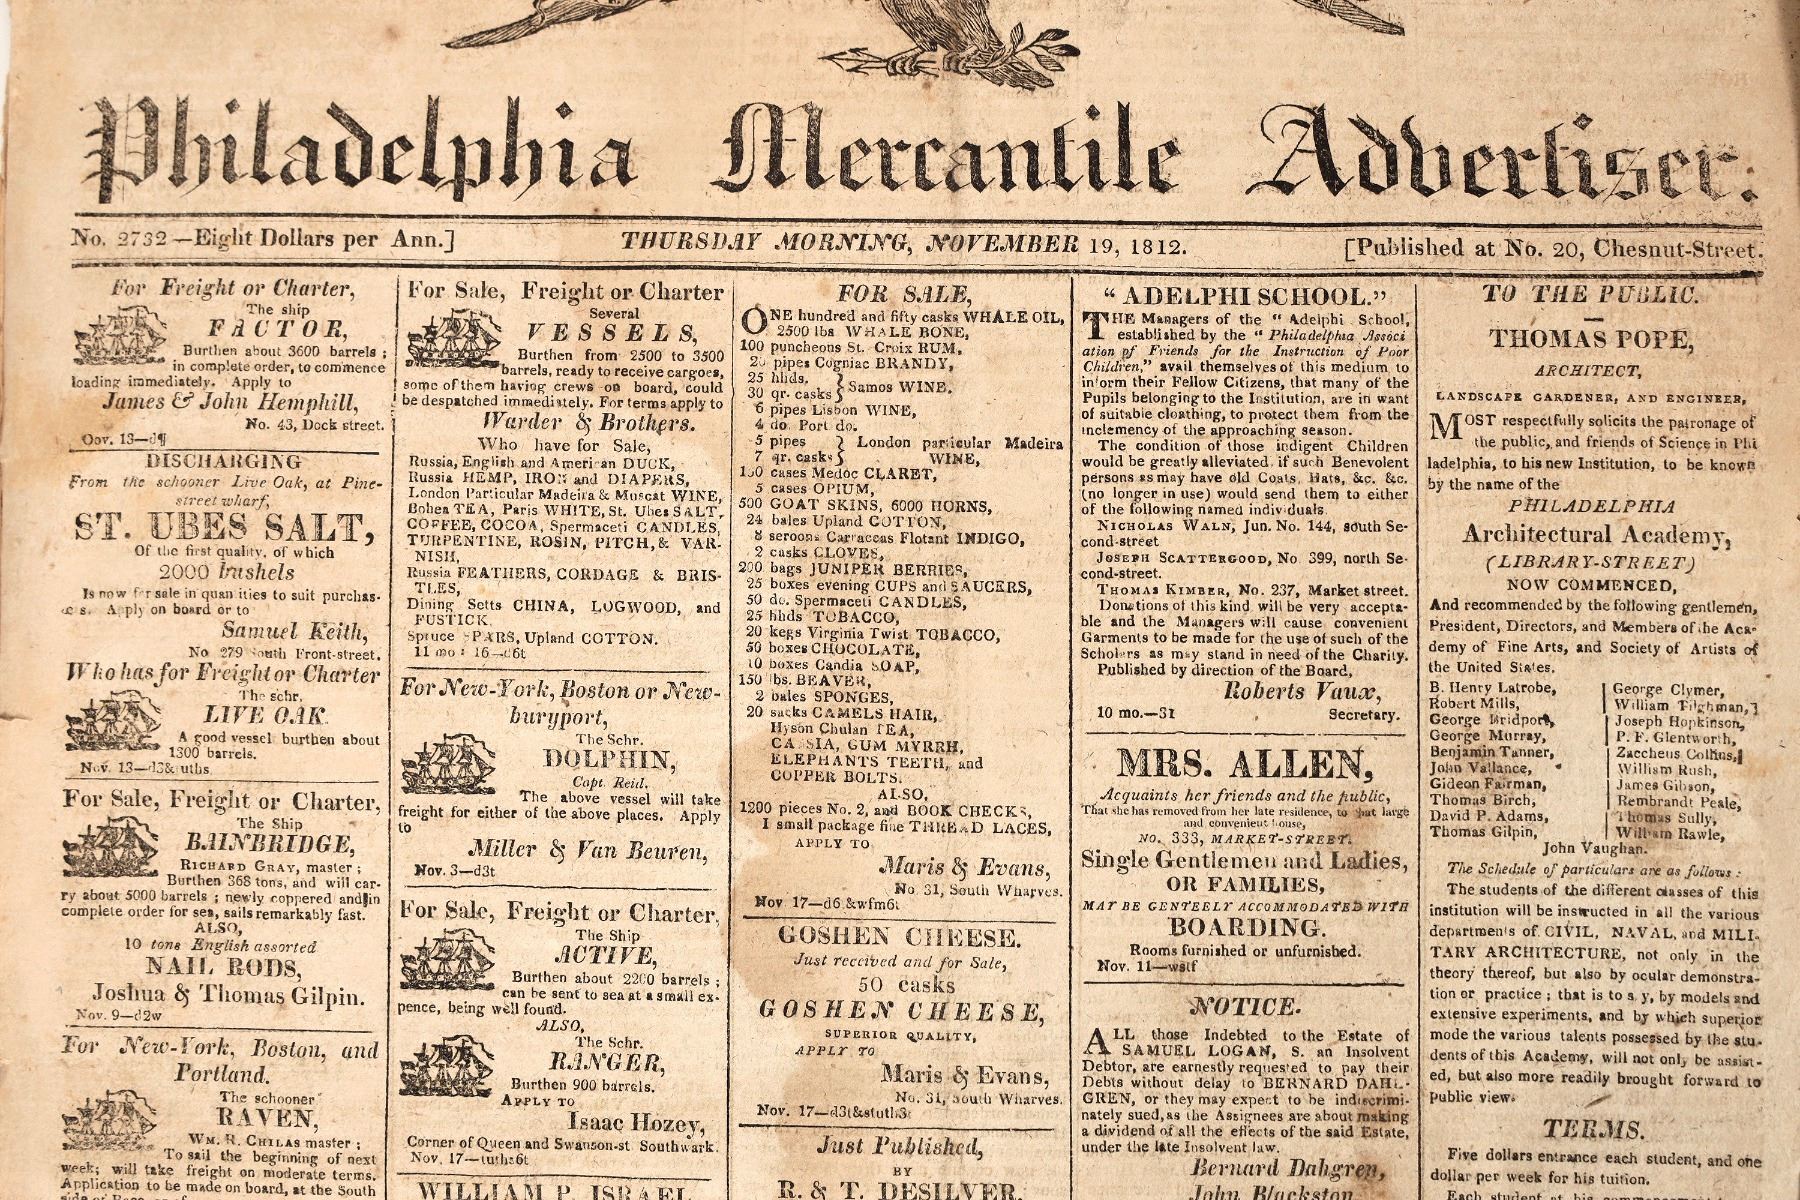 Philadelphia Mercantile Advertiser.
No. 2732—Eight Dollars per Ann.]
THURSDAY MORNING, NOVEMBER 19, 1812.
[Published at No. 20, Chesnut-Street.
For Freight or Charter,
The ship
FACTOR,
Burthen about 3600 barrels ;
in complete order, to commence
loading immediately. Apply to
James & John Hemphill,
No. 43, Dock street.
Oov. 13—d¶
DISCHARGING
From the schooner Live Oak, at Pine-
street wharf,
ST. UBES SALT,
Of the first quality, of which
2000 bushels
Is now for sale in quan ities to suit purchas-
Apply on board or to
Samuel Keith,
No 279 South Front-street.
Who has for Freight or Charter
The schr.
LIVE OAK.
A good vessel burthen about
1300 barrels.
Nov. 13—d3&tuths
For Sale, Freight or Charter,
The Ship
BAINBRIDGE,
RICHARD GRAY, master ;
Burthen 368 tons, and will car-
ry about 5000 barrels ; newly coppered and in
complete order for sea, sails remarkably fast.
ALSO,
10 tons English assorted
NAIL RODS,
Joshua & Thomas Gilpin.
Nov. 9—d2w
For New-York, Boston, and
Portland.
The schooner
RAVEN,
WM. R. CHILAS master ;
To sail the beginning of next
week; will take freight on moderate terms.
Application to be made on board, at the South
side of
For Sale, Freight or Charter
Several
VESSELS,
Burthen from 2500 to 3500
barrels, ready to receive cargoes,
some of them having crews on board, could
be despatched immediately. For terms apply to
Warder & Brothers.
Who have for Sale,
Russia, English and American DUCK,
Russia HEMP, IRON and DIAPERS,
London Particular Madeira & Muscat WINE,
Bohea TEA, Paris WHITE, St. Ubes SALT,
COFFEE, COCOA, Spermaceti CANDLES,
TURPENTINE, ROSIN, PITCH, & VAR-
NISH,
Russia FEATHERS, CORDAGE & BRIS-
TLES,
Dining Setts CHINA, LOGWOOD, and
FUSTICK,
Spruce SPARS, Upland COTTON.
11 mo : 16—d6t
For New-York, Boston or New-
buryport,
The Schr.
DOLPHIN,
Capt. Reid.
The above vessel will take
freight for either of the above places. Apply
to
Miller & Van Beuren,
Nov. 3—d3t
For Sale, Freight or Charter,
The Ship
ACTIVE,
Burthen about 2200 barrels ;
can be sent to sea at a small ex-
pence, being well found.
ALSO,
The Schr.
RANGER,
Burthen 900 barrels.
APPLY TO
Isaac Hozey,
Corner of Queen and Swanson-st Southwark.
Nov. 17—tuths6t
WILLIAM P. ISRAEL
FOR SALE,
ONE hundred and fifty casks WHALE OIL,
2500 lbs WHALE BONE,
100 puncheons St. Croix RUM,
20 pipes Cogniac BRANDY,
25 hhds. }
30 qr. casks } Samos WINE.
6 pipes Lisbon WINE,
4 do. Port do.
5 pipes } London particular Madeira
7 qr. casks } WINE,
150 cases Medoc CLARET,
5 cases OPIUM,
500 GOAT SKINS, 6000 HORNS,
24 bales Upland COTTON,
8 seroons Carraccas Flotant INDIGO,
2 casks CLOVES,
200 bags JUNIPER BERRIES,
25 boxes evening CUPS and SAUCERS,
50 do. Spermaceti CANDLES,
25 hhds TOBACCO,
20 kegs Virginia Twist TOBACCO,
50 boxes CHOCOLATE,
10 boxes Candia SOAP,
150 lbs. BEAVER,
2 bales SPONGES,
20 sacks CAMELS HAIR,
Hyson Chulan TEA,
CASSIA, GUM MYRRH,
ELEPHANTS TEETH, and
COPPER BOLTS.
ALSO,
1200 pieces No. 2, and BOOK CHECKS,
1 small package fine THREAD LACES,
APPLY TO
Maris & Evans,
No. 31, South Wharves.
Nov 17—d6 &wfm6t
GOSHEN CHEESE.
Just received and for Sale,
50 casks
GOSHEN CHEESE,
SUPERIOR QUALITY,
APPLY TO
Maris & Evans,
No. 31, South Wharves.
Nov. 17—d3t&stuth3t
Just Published,
BY
R. & T. DESILVER,
“ ADELPHI SCHOOL.”
THE Managers of the “ Adelphi School,
established by the “ Philadelphia Associ
ation of Friends for the Instruction of Poor
Children,” avail themselves of this medium to
inform their Fellow Citizens, that many of the
Pupils belonging to the Institution, are in want
of suitable cloathing, to protect them from the
inclemency of the approaching season.
The condition of those indigent Children
would be greatly alleviated if such Benevolent
persons as may have old Coats, Hats, &c. &c.
(no longer in use) would send them to either
of the following named individuals
NICHOLAS WALN, Jun. No. 144, south Se-
cond-street
JOSEPH SCATTERGOOD, No 399, north Se-
cond-street.
THOMAS KIMBER, No. 237, Market street.
Donations of this kind will be very accepta-
ble and the Managers will cause convenient
Garments to be made for the use of such of the
Scholars as may stand in need of the Charity.
Published by direction of the Board,
Roberts Vaux,
10 mo.—31 Secretary.
MRS. ALLEN,
Acquaints her friends and the public,
That she has removed from her late residence, to that large
and convenient house,
NO. 333, MARKET-STREET.
Single Gentlemen and Ladies,
OR FAMILIES,
MAY BE GENTEELY ACCOMMODATED WITH
BOARDING.
Rooms furnished or unfurnished.
Nov. 11—wstf
NOTICE.
ALL those Indebted to the Estate of
SAMUEL LOGAN, S. an Insolvent
Debtor, are earnestly requested to pay their
Debts without delay to BERNARD DAHL-
GREN, or they may expect to be indiscrimi-
nately sued, as the Assignees are about making
a dividend of all the effects of the said Estate,
under the late Insolvent law.
Bernard Dahgren,
John Blackston
TO THE PUBLIC.
THOMAS POPE,
ARCHITECT,
LANDSCAPE GARDENER, AND ENGINEER,
MOST respectfully solicits the patronage of
the public, and friends of Science in Phi
ladelphia, to his new Institution, to be known
by the name of the
PHILADELPHIA
Architectural Academy,
(LIBRARY-STREET)
NOW COMMENCED,
And recommended by the following gentlemen,
President, Directors, and Members of the Aca-
demy of Fine Arts, and Society of Artists of
the United States.
B. Henry Latrobe, | George Clymer,
Robert Mills, | William Tilghman,
George Bridport, | Joseph Hopkinson,
George Murray, | P. F. Glentworth,
Benjamin Tanner, | Zaccheus Collins,
John Vallance, | William Rush,
Gideon Fairman, | James Gibson,
Thomas Birch, | Rembrandt Peale,
David P. Adams, | Thomas Sully,
Thomas Gilpin, | William Rawle,
John Vaughan.
The Schedule of particulars are as follows :
The students of the different classes of this
institution will be instructed in all the various
departments of CIVIL, NAVAL, and MILI
TARY ARCHITECTURE, not only in the
theory thereof, but also by ocular demonstra-
tion or practice ; that is to s y, by models and
extensive experiments, and by which superior
mode the various talents possessed by the stu-
dents of this Academy, will not only be assist-
ed, but also more readily brought forward to
public view.
TERMS.
Five dollars entrance each student, and one
dollar per week for his tuition.
Each student at his